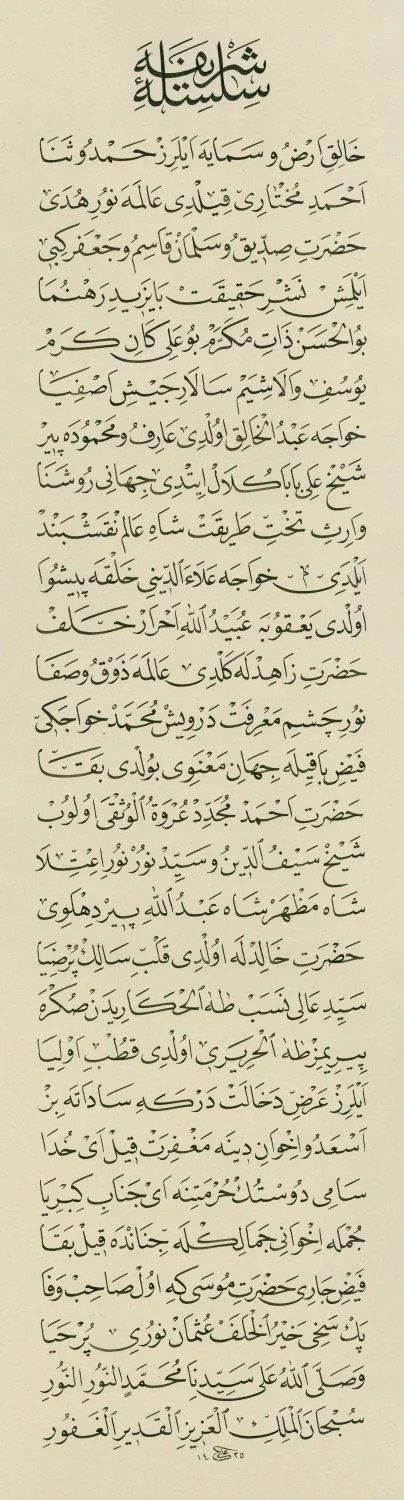 سلسلهٔ شریفه
خالق ارض و سمایه ایلرز حمد و ثنا
احمد مختاری قیلدی عالمه نور هدی
حضرت صدیق و سلمان قاسم و جعفر کبی
ایلمش نشر حقیقت بایزید رهنما
بوالحسن ذات مکرم بوعلی کان کرم
یوسف والاشیم سالار جیش اصفیا
خواجه عبدالخالق اولدی عارف و محموده پیر
شیخ علی بابا کلال ایتدی جهانی روشنا
وارث تخت طریقت شاه عالم نقشبند
ایلدی خواجه علاءالدینی خلقه پیشوا
اولدی یعقوبه عبیدالله احرار خلف
حضرت زاهدله کلدی عالمه ذوق و صفا
نور چشم معرفت درویش محمد خواجکی
فیض باقیله جهان معنوی بولدی بقا
حضرت احمد مجدد عروة الوثقی اولوب
شیخ سیف الدین و سید نور نور اعتلا
شاه مظهر شاه عبدالله پیر دهلوی
حضرت خالدله اولدی قلب سالک پرضیا
سید عالی نسب طه الحکاریدن صکره
پیریمز طه الحریری اولدی قطب اولیا
ایلرز عرض دخالت درکه ساداته بز
اسعد و اخوان دینه مغفرت قیل ای خدا
سامی دوستک حرمتنه ای جناب کبریا
جمله اخوانی جمالکله جنانده قیل بقا
فیض جاری حضرت موسی که اول صاحب وفا
پک سخی خیر الخلف عثمان نوری پرحیا
وصلی الله علی سیدنا محمد النور النور
سبحان الملک العزیز القدیر الغفور